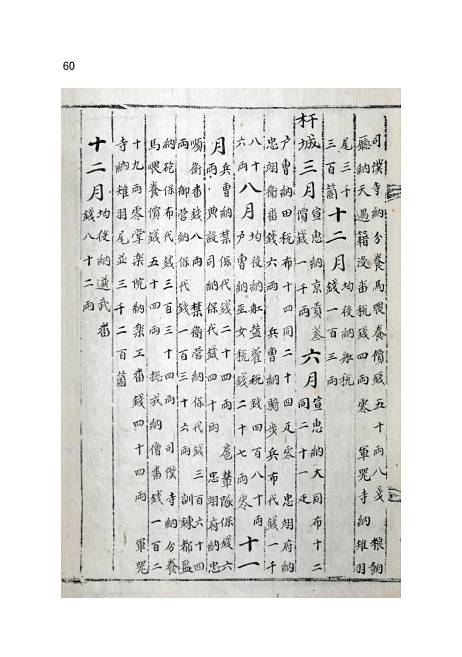 60
司僕寺納分養馬喂養價錢五十兩八戔 粮餉
廳納天過籍沒畓稅錢四兩零 軍器寺納雉羽
尾三千三百箇十二月均役納船稅錢一百三兩
杆城三月宣惠納京貢蔘價錢一千兩六月宣惠納大同布十二同二十一疋
戶曹納田稅布十四同二十四疋零 忠翊府納
忠翊衛番錢六兩 兵曹納騎步兵布代錢一千
八十六兩八月均役納船鹽藿稅錢四百八十兩 戶曹納巫女稅錢二十七兩零十一
月兵曹納禁保代錢二十四兩 扈輦隊保錢六兩 典設司納保代錢四十兩 忠翊府納忠
順衛番錢八兩 禁衛營納保代錢三百六十四
兩 御營納保代錢一百三十六兩 訓鍊都監
納砲保布代錢三百三十四兩 司僕寺納分養
馬喂養價錢五十四兩 摠戎納僧番錢一百二
十九兩零 掌樂院納樂工番錢四十四兩 軍器
寺納雉羽尾並三千二百箇
十二月均役納選武番錢八十二兩